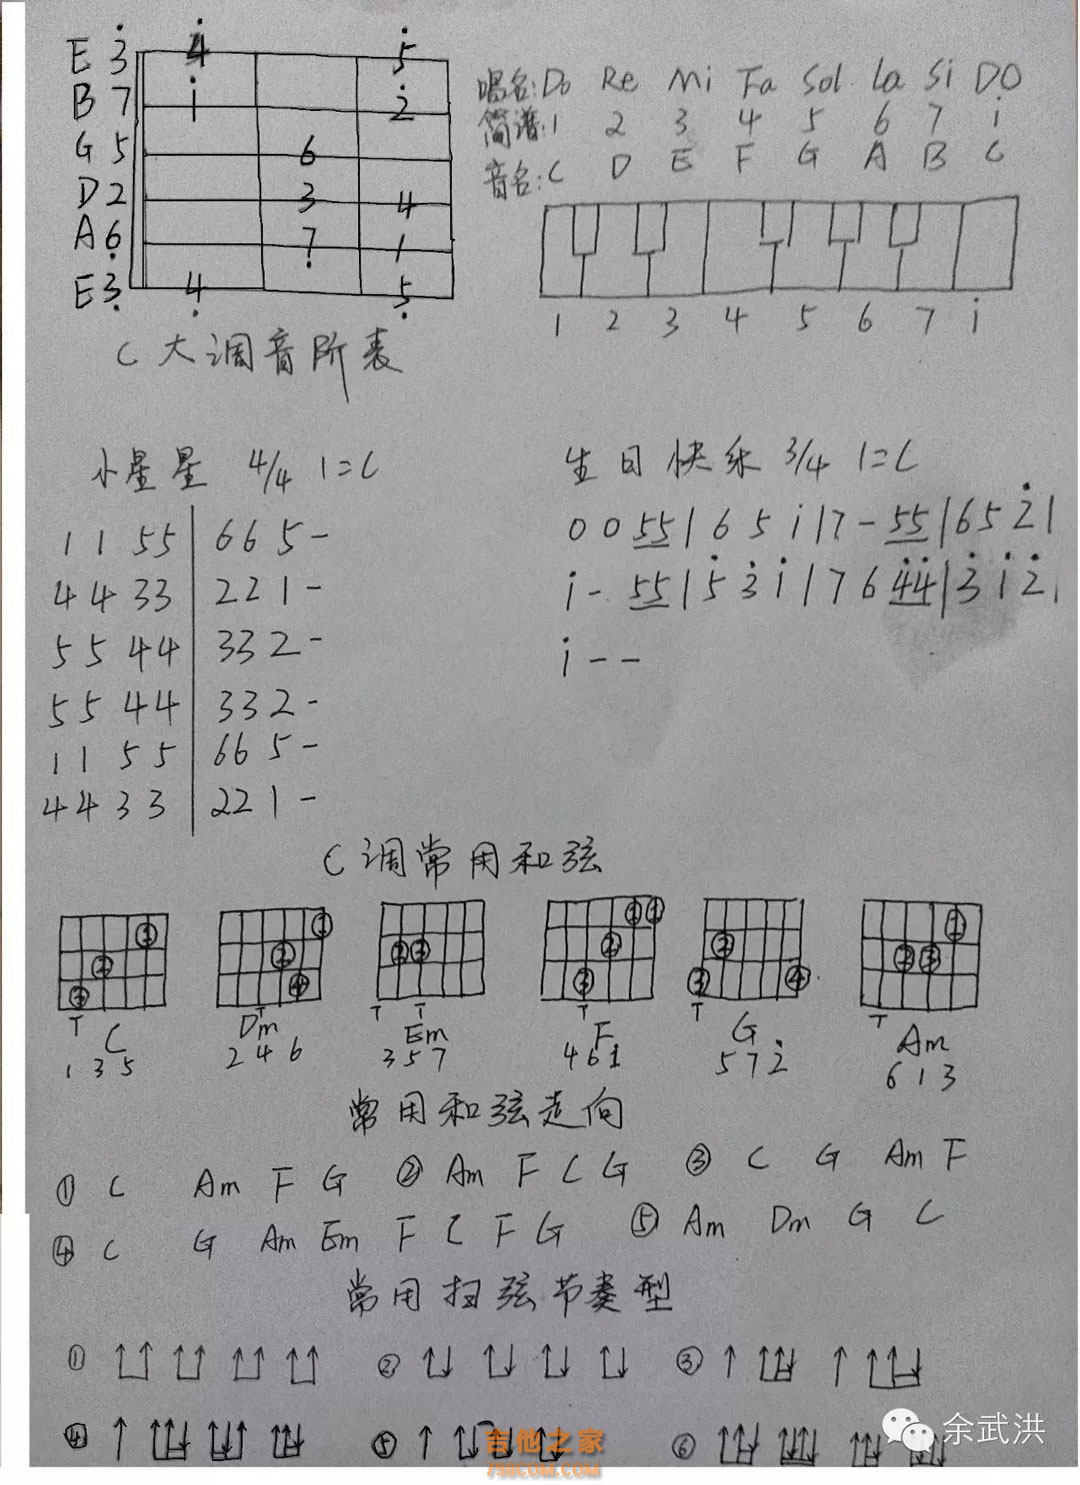 E 3̇ 4̇ 5̇
B 7 i 2̇
G 5 6
D 2 3 4
A 6̣ 7̣ 1
E 3̣ 4̣ 5̣
C 大调音阶表
唱名: Do Re Mi Fa Sol La Si DO
简谱: 1 2 3 4 5 6 7 i
音名: C D E F G A B C
1 2 3 4 5 6 7 i
小星星 4/4 1=C
1 1 5 5 | 6 6 5 -
4 4 3 3 | 2 2 1 -
5 5 4 4 | 3 3 2 -
5 5 4 4 | 3 3 2 -
1 1 5 5 | 6 6 5 -
4 4 3 3 | 2 2 1 -
生日快乐 3/4 1=C
0 0 55 | 6 5 i | 7 - 55 | 6 5 2̇ |
i - 55 | 5̇ 3̇ i | 7 6 4̇4̇ | 3̇ i 2̇ |
i - -
C调常用和弦
① ② ③
① ② ④
② ③
① ① ② ③
② ③ ④
① ② ③
T T T T T T T
C Dm Em F G Am
1 3 5 2 4 6 3 5 7 4 6 1 5 7 2̇ 6 1 3
常用和弦走向
① C Am F G ② Am F C G ③ C G Am F
④ C G Am Em F C F G ⑤ Am Dm G C
常用扫弦节奏型
① ↑↑ ↑↑ ↑↑ ↑↑ ② ↑↓ ↑↓ ↑↓ ↑↓ ③
④ ⑤ ⑥
吉他之家
798COM.COM
余武洪